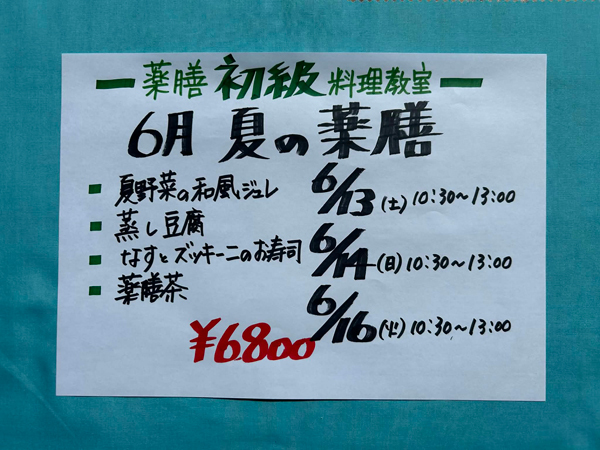 薬膳 初級 料理教室
6月 夏の薬膳
夏野菜の和風ジュレ
蒸し豆腐
なすとズッキーニのお寿司
薬膳茶
6/13(土) 10:30~13:00
6/14(日) 10:30~13:00
6/16(火) 10:30~13:00
¥6800